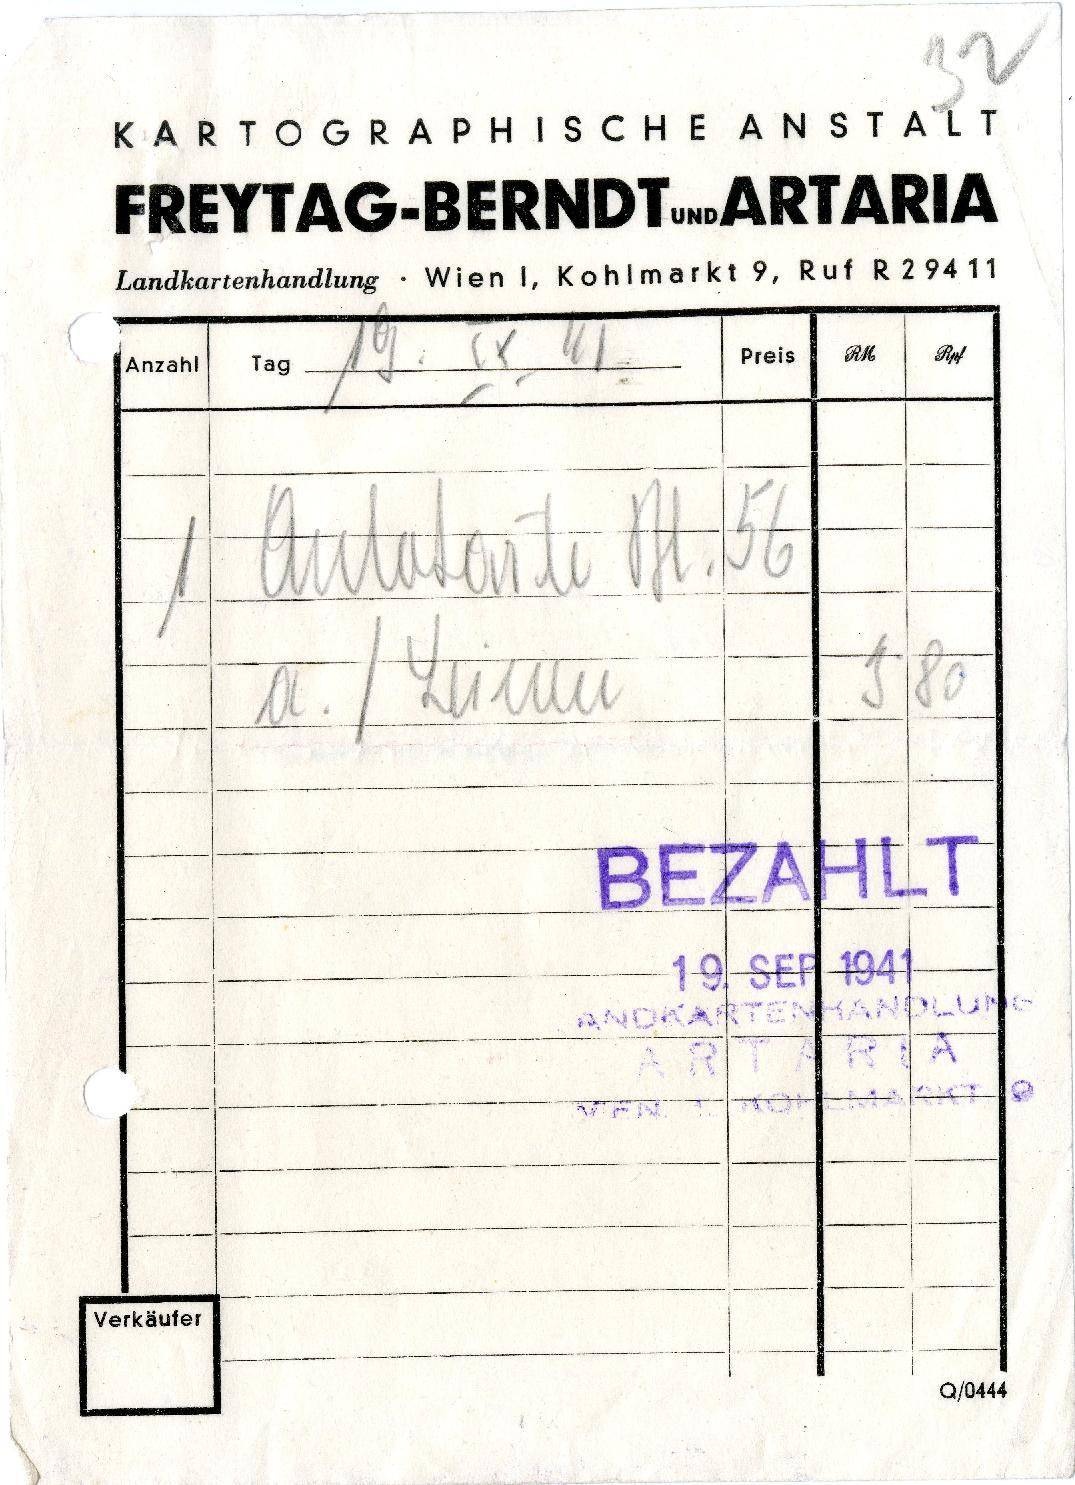 32
KARTOGRAPHISCHE ANSTALT
FREYTAG-BERNDT UND ARTARIA
Landkartenhandlung · Wien I, Kohlmarkt 9, Ruf R 29411
Anzahl Tag 19. IX 41 Preis RM Rpf
1 Autokarte Bl. 56
a./Leinen 3 80
BEZAHLT
19. SEP 1941
ANDKARTENHANDLUNG
ARTARIA
WIEN I. KOHLMARKT 9
Verkäufer
Q/0444